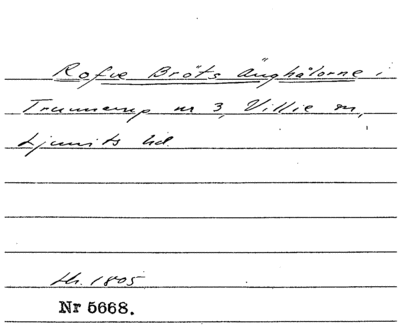 Rofve Bröts Änghålorne i
Trunnerup nr 3, Villie sn,
Ljunits hd.
Hs. 1805
Nr 5668.